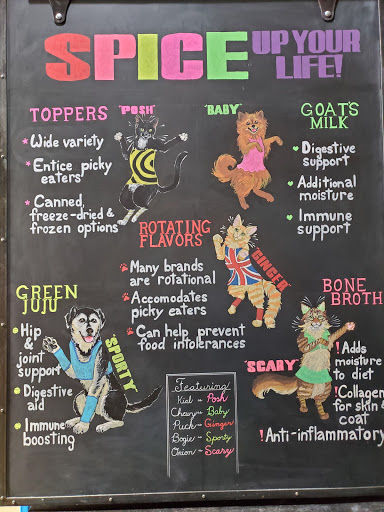 SPICE UP YOUR
LIFE!
TOPPERS
* Wide variety
* Entice picky
eaters
* Canned,
freeze-dried &
frozen options
"POSH"
"BABY"
GOAT'S
MILK
Digestive
support
Additional
moisture
Immune
support
ROTATING
FLAVORS
Many brands
are rotational
Accomodates
picky eaters
Can help prevent
food intolerances
GINGER
GREEN
JUJU
Hip &
joint
support
Digestive
aid
Immune
boosting
"SPORTY"
BONE
BROTH
! Adds
moisture
to diet
! Collagen
for skin &
coat
! Anti-inflammatory
"SCARY"
Featuring
Kiel - Posh
Chewy - Baby
Puck - Ginger
Bogie - Sporty
Orion - Scary